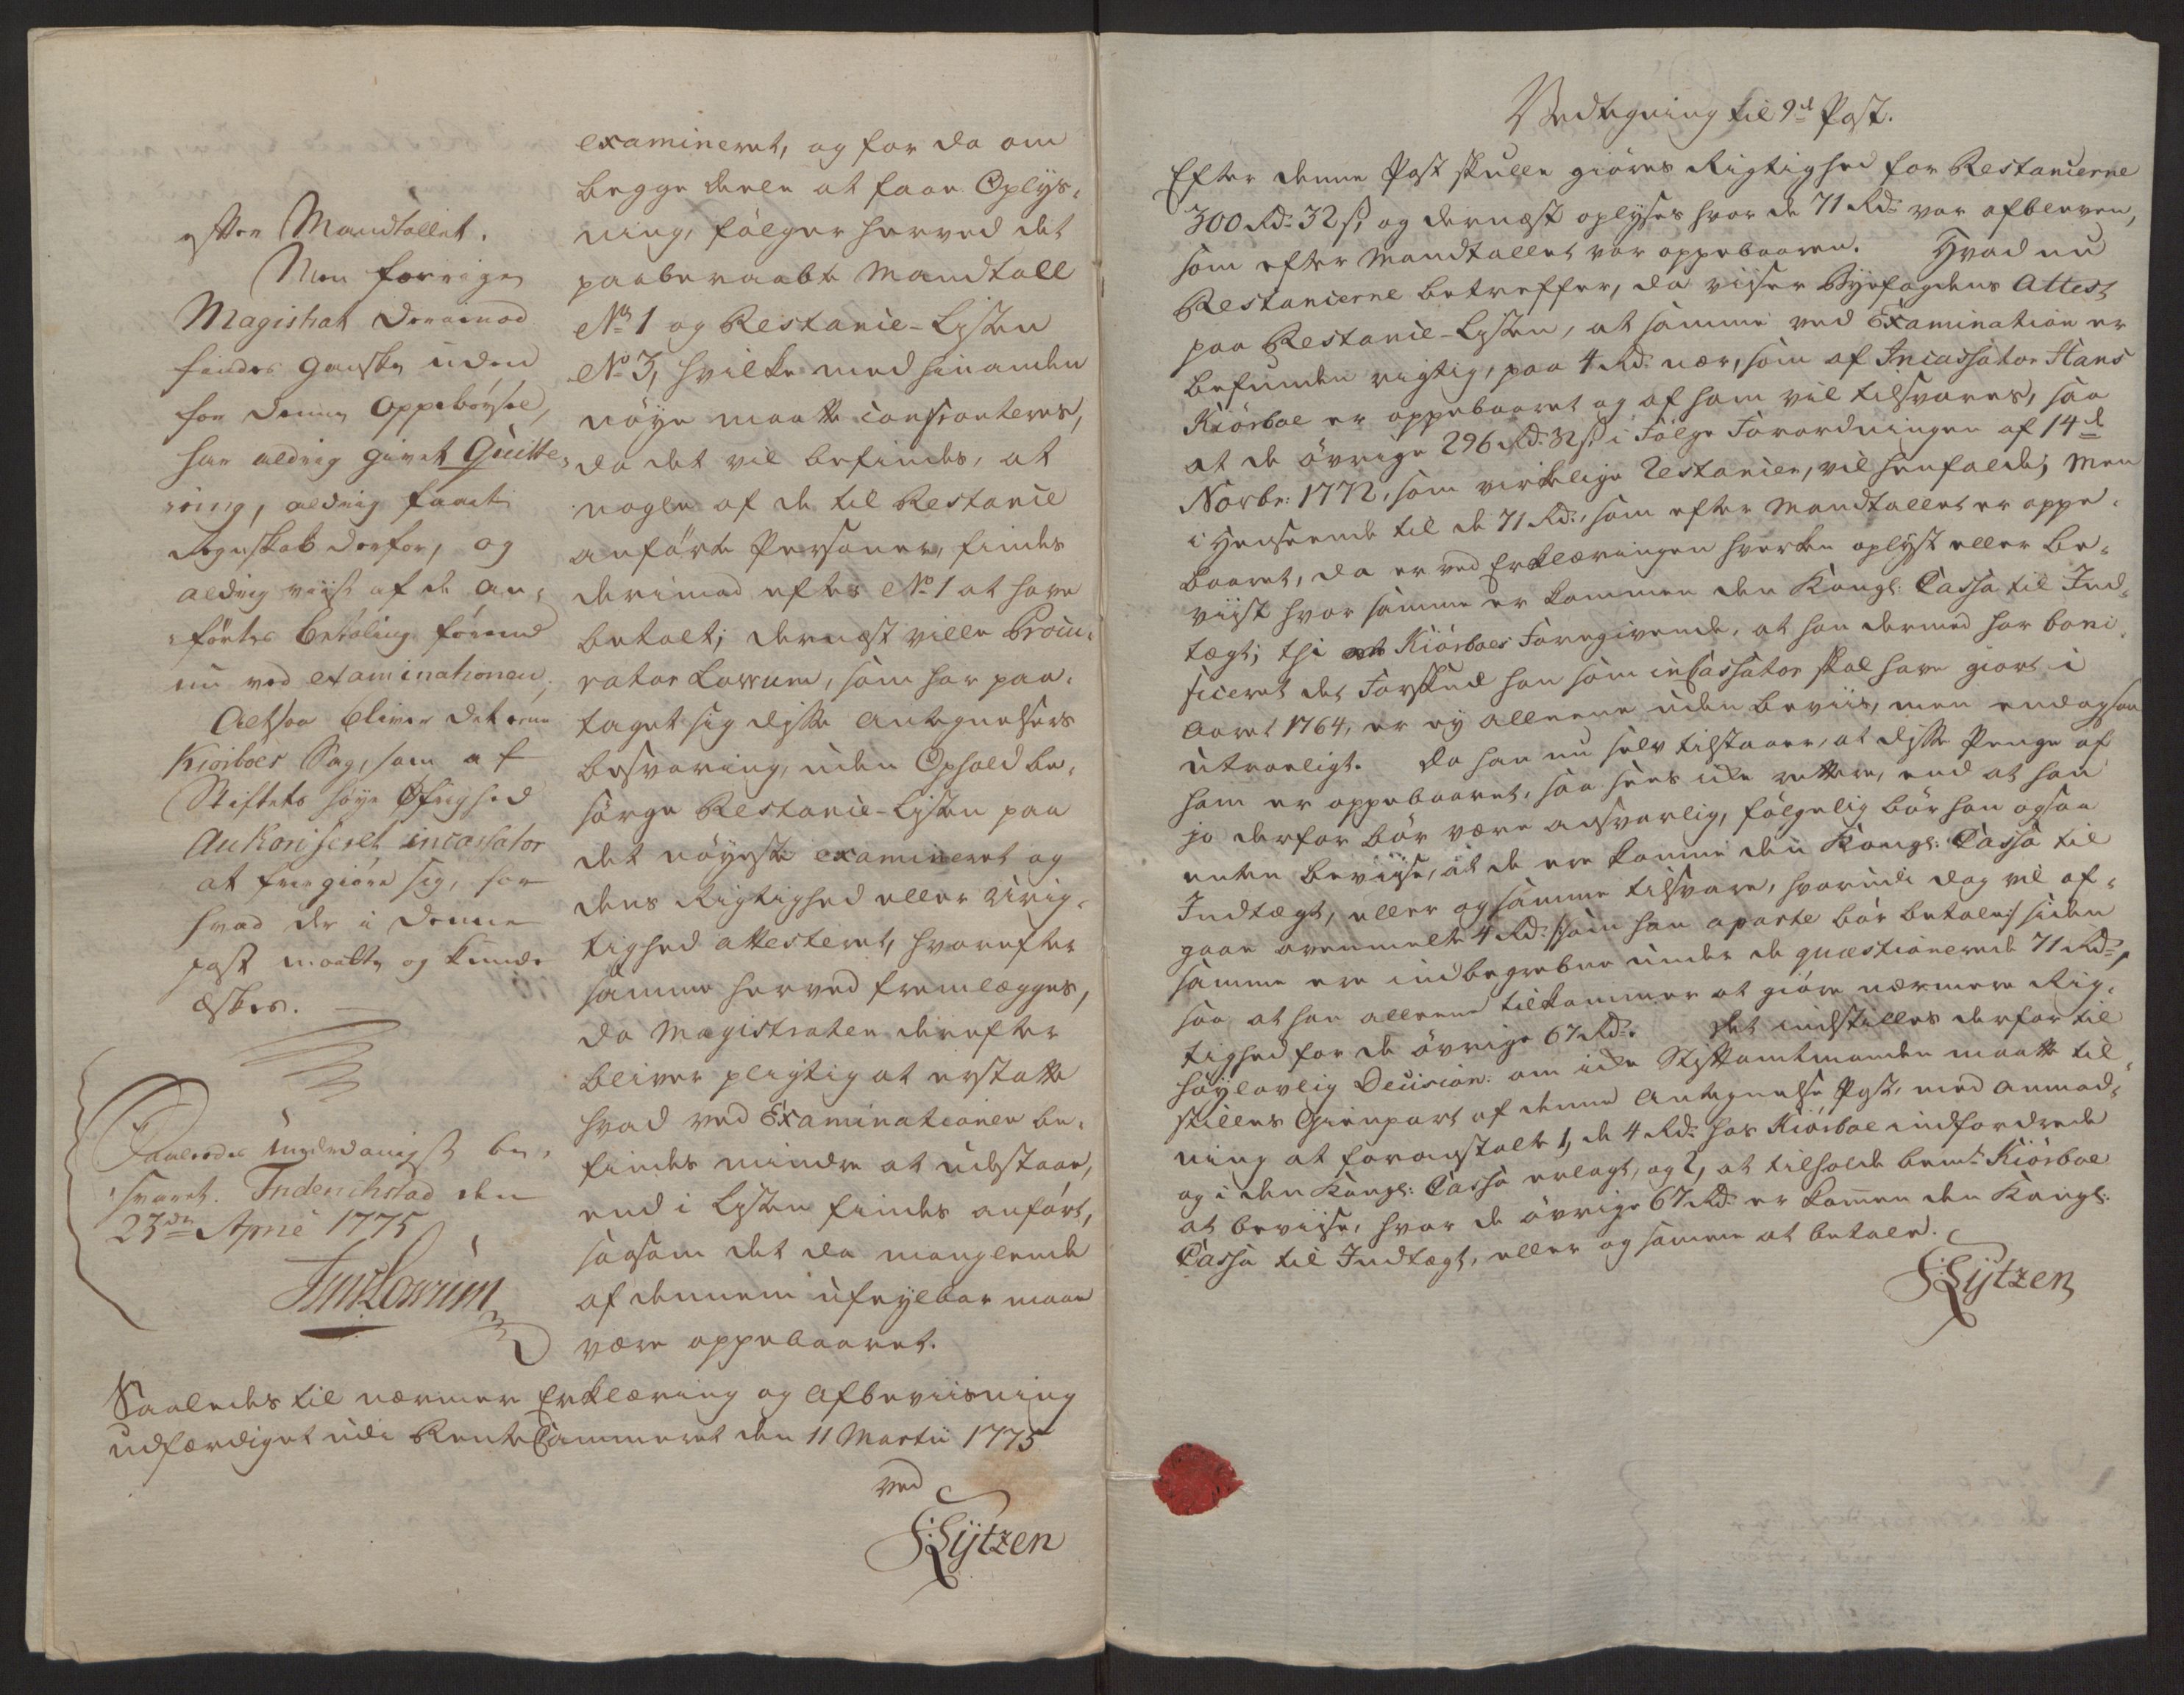 efter Mandtallet.
Men forrige
Magistrat deraemod
findes ganske uden
for denne Oppebørsel,
har aldrig givet Quitte-
ring, aldrig faaet
Regnskab derfor, og
aldrig viist af de an-
førtes betaling førend
nu ved examinationen,
Altsaa bliver det
Kiørboes Sag, som af
Stiftets høye Øfrighed
Autoriseret incassator
at friegiøre sig, for
hvad der i denne
post maatte og kunde
æskes.
Saaledes underdanigst be-
svaret. Friderichstad den
23de April 1775
Lowum
examineret, og for da om
begge deele at faae Oplys-
ning, følger herved det
paaberaabte Mandtall
No 1 og Restance-Listen
No 3, hvilke med hinanden
nøye maatte confronteres,
da det vil befindes, at
nogle af de til Restance
anførte Personer, findes
derimod efter No 1 at have
betalt; dernæst ville Procu-
rator Lowum, som har paa-
taget sig disse Antegnelsers
besvaring, uden Ophold be-
sørge Restance-Listen paa
det nøyeste examineret og
dens Rigtighed eller Urig-
tighed attesteret, hvorefter
samme herved fremlægges,
da Magistraten derefter
bliver pligtig at erstatte
hvad ved Examinationen be-
findes mindre at udestaae,
end i Listen findes anført,
saasom det da manglende
af dennem ufeylbar maae
være oppebaaret.
Saaledes til nærmere Erklæring og Afbeviisning
udfærdiget udi RenteCammeret den 11 Martii 1775
ved
S: Lützen
Vedtegning til 9de Post.
Efter denne Post skulle giøres Rigtighed for Restancierne
300 Rd. 32 s, og dernæst oplyses hvor de 71 Rd. var afbleven,
som efter Mandtallet var oppebaaren. Hvad nu
Restancierne betreffer, da viiser Byefogdens Attest
paa Restance-Listen, at samme ved Examination er
befunden rigtig, paa 4 Rd. nær, som af Incassator Hans
Kiørboe er oppebaaret og af ham vil tilsvares, saa
at de øvrige 296 Rd. 32 s i Følge Forordningen af 14de
Novbr: 1772, som virkelige Restancier, vil henfalde; Men
i Henseende til de 71 Rd., som efter Mandtallet er oppe-
baaret, da er ved Erklæringen hverken oplyst eller be-
viist hvor samme er kommen den Kongl: Cassa til Ind-
tægt; thi Kiørboes Foregivende, at han dermed har boni-
ficeret det Forskud han som incassator skal have giort i
Aaret 1764, er ey alleene uden beviis, men endogsaa
utroeligt. Da han nu selv tilstaaer, at disse Penge af
ham er oppebaaret, saa sees icke rettere, end at han
jo derfor bør være ansvarlig, følgelig bør han ogsaa
enten beviise, at de ere komne den Kongl: Cassa til
Indtægt, eller og samme tilsvare, hvorudi dog vil af-
gaae ovenmelte 4 Rd. som han aparte bør betale, siden
samme ere indbegrebne under de quæstionerede 71 Rd.,
saa at han alleene tilkommer at giøre nærmere Rig-
tighed for de øvrige 67 Rd. Det indstilles derfor til
høylovlig Decision: om icke Stiftamtmanden maatte til-
stilles Gienpart af denne Antegnelse Post, med Anmod-
ning at foranstalte 1, de 4 Rd. hos Kiørboe indfordrede
og i den Kongl: Cassa erlagt, og 2, at tilholde bemte Kiørboe
at beviise, hvor de øvrige 67 Rd. er kommen den Kongl:
Cassa til Indtægt, eller og samme at betale.
S: Lützen